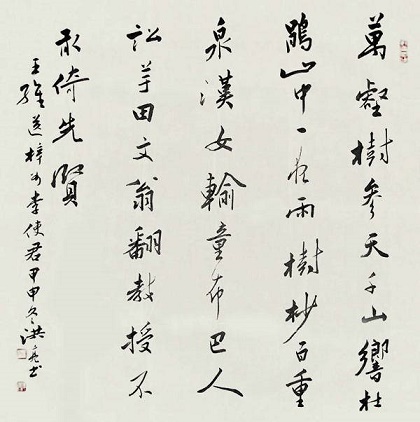 萬壑樹參天千山響杜
鵑山中一夜雨樹杪百重
泉漢女輸童布巴人
訟芋田文翁翻教授不
敢倚先賢
王維送梓州李使君甲申冬洪亮书